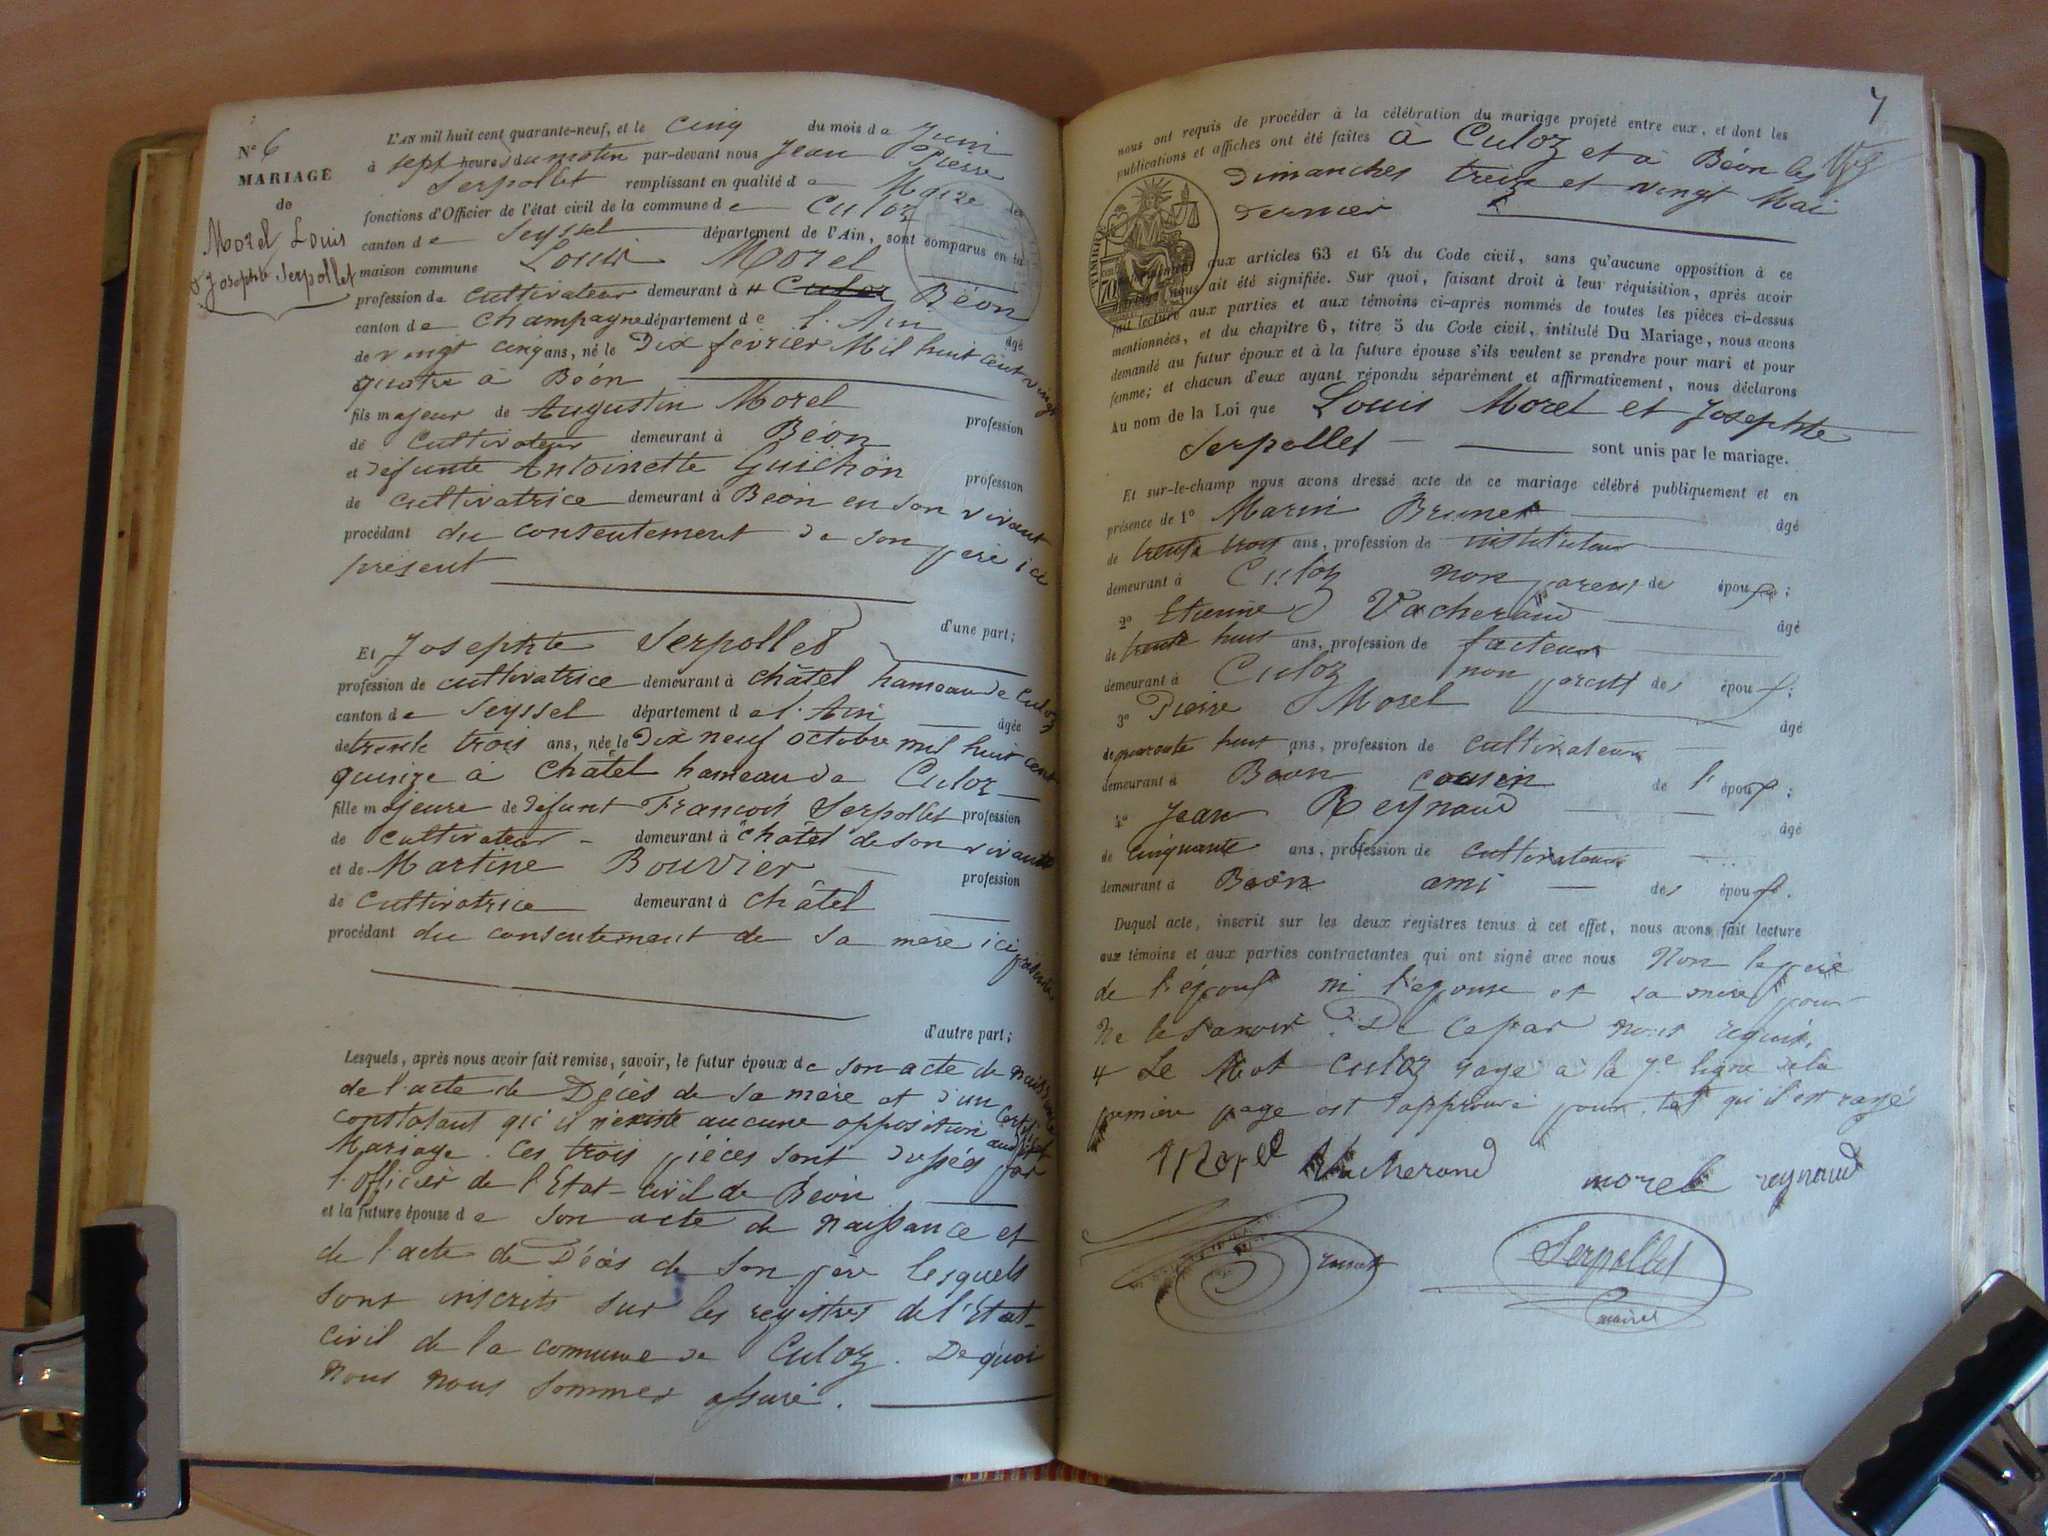 N° 6
MARIAGE
de
Morel Louis
& Josephte Serpollet
L'AN mil huit cent quarante-neuf, et le cinq du mois de Juin
à sept heures du matin par-devant nous Jean Pierre
Serpollet remplissant en qualité de Maire les
fonctions d'Officier de l'état civil de la commune de Culoz
canton de Seyssel département de l'Ain, sont comparus en la
maison commune Louis Morel
profession de cultivateur demeurant à Culoz Béon
canton de Champagne département de l'Ain âgé
de vingt cinq ans, né le Dix février Mil huit cent vingt
quatre à Béon
fils majeur de Augustin Morel profession
de cultivateur demeurant à Béon
et défunte Antoinette Guichon profession
de cultivatrice demeurant à Béon en son vivant
procédant du consentement de son père ici
présent
d'une part;
Et Josephte Serpollet
profession de cultivatrice demeurant à châtel hameau de Culoz
canton de Seyssel département de l'Ain âgée
de trente trois ans, née le Dix neuf octobre mil huit cent
quinze à Châtel hameau de Culoz
fille majeure de défunt François Serpollet profession
de cultivateur demeurant à châtel de son vivant
et de Martine Bouvier profession
de cultivatrice demeurant à châtel
procédant du consentement de sa mère ici présente
d'autre part;
Lesquels, après nous avoir fait remise, savoir, le futur époux de son acte de naissance
de l'acte de Décès de sa mère et d'un certificat
constatant qu'il n'existe aucune opposition audit
Mariage. Ces trois pièces sont par
l'officier de l'Etat-civil de Béon
et la future épouse de son acte de naissance et
de l'acte de Décès de son père lesquels
sont inscrits sur les registres de l'Etat-
civil de la commune de Culoz. De quoi
nous nous sommes assuré.
7
nous ont requis de procéder à la célébration du mariage projeté entre eux, et dont les
publications et affiches ont été faites à Culoz et à Béon les
Dimanches treize et vingt Mai
dernier
TIMBRE
70
aux articles 63 et 64 du Code civil, sans qu'aucune opposition à ce
nous ait été signifiée. Sur quoi, faisant droit à leur réquisition, après avoir
fait lecture aux parties et aux témoins ci-après nommés de toutes les pièces ci-dessus
mentionnées, et du chapitre 6, titre 5 du Code civil, intitulé Du Mariage, nous avons
demandé au futur époux et à la future épouse s'ils veulent se prendre pour mari et pour
femme; et chacun d'eux ayant répondu séparément et affirmativement, nous déclarons
Au nom de la Loi que Louis Morel et Josephte
Serpollet sont unis par le mariage.
Et sur-le-champ nous avons dressé acte de ce mariage célébré publiquement et en
présence de 1° Marin Brunet âgé
de trente trois ans, profession de instituteur
demeurant à Culoz non parent de époux;
2° Etienne Vacherand âgé
de trente huit ans, profession de facteur
demeurant à Culoz non parent des époux;
3° Pierre Morel âgé
de quarante huit ans, profession de cultivateur
demeurant à Béon cousin de l'époux;
4° Jean Reynaud âgé
de cinquante ans, profession de cultivateur
demeurant à Béon ami des époux.
Duquel acte, inscrit sur les deux registres tenus à cet effet, nous avons fait lecture
aux témoins et aux parties contractantes qui ont signé avec nous Non le père
de l'époux ni l'épouse et sa mère pour
ne le savoir. De ce par nous requis.
Le Mot Culoz rayé a la 7e ligne de la
première page est approuvé pour tel qu'il est rayé
Morel Vacherand morel reynaud
Brunet
Serpollet
maire